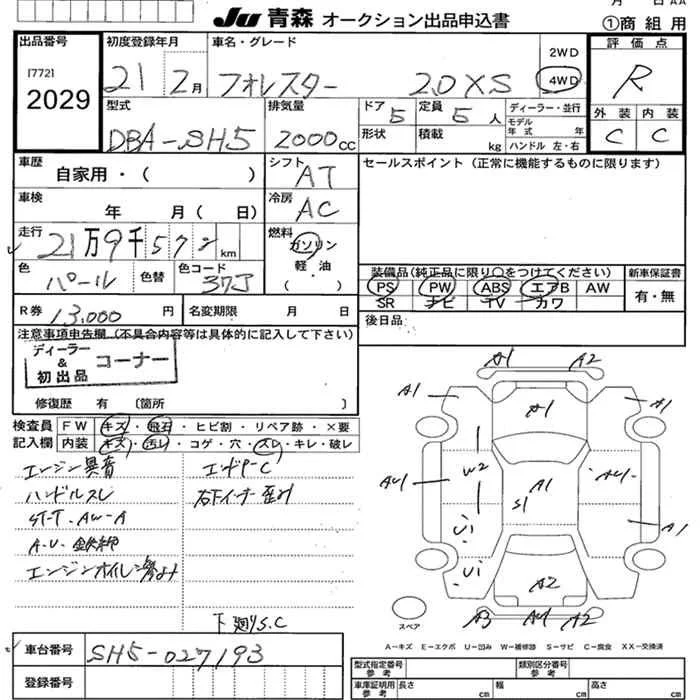 Ju 青森 オークション出品申込書
①商組用
出品番号
[772]
2029
初度登録年月
21 2月
車名・グレード
フォレスター 2.0XS
2WD
4WD
評価点
R
外装 内装
C C
型式
DBA-SH5
排気量
2000cc
ドア 5
形状
定員 5人
積載 kg
ディーラー・並行
モデル年式 年
ハンドル 左・右
車歴
自家用・( )
シフト
AT
セールスポイント (正常に機能するものに限ります)
車検
年 月( 日)
冷房
AC
走行
21万9千572km
燃料
ガソリン
軽油
( ・ )
色
パール
色替
色コード
37J
装備品(純正品に限り○をつけてください)
PS PW ABS エアB AW
SR ナビ TV カワ
新車保証書
有・無
R券 13,000円
名変期限 月 日
後日品
注意事項申告欄 (不具合内容等は具体的に記入して下さい)
ディーラー
&
初出品
コーナー
修復歴 有 〔箇所 〕
検査員
記入欄
FW キズ・飛石・ヒビ割・リペア跡・×要
内装 キズ・汚レ・コゲ・穴・スレ・キレ・破レ
エンジン異音
ハンドルスレ
ST-T・AW-A
A-U・鉄錆
エンジンオイル滲み
エンドP-C
右下インナー歪み
下廻りS.C
A1 A2
A1 A1 A1
W2 A1 S1
AU1 AU1
U1 A1
U1 A2
A3 A4 A2
スペア
A-キズ E-エクボ U-凹み W-補修跡 S-サビ C-腐食 XX-交換済
車台番号
SH5-027193
登録番号
型式指定番号
参考
類別区分番号
参考
車庫証明用
参考
長さ cm
幅 cm
高さ cm